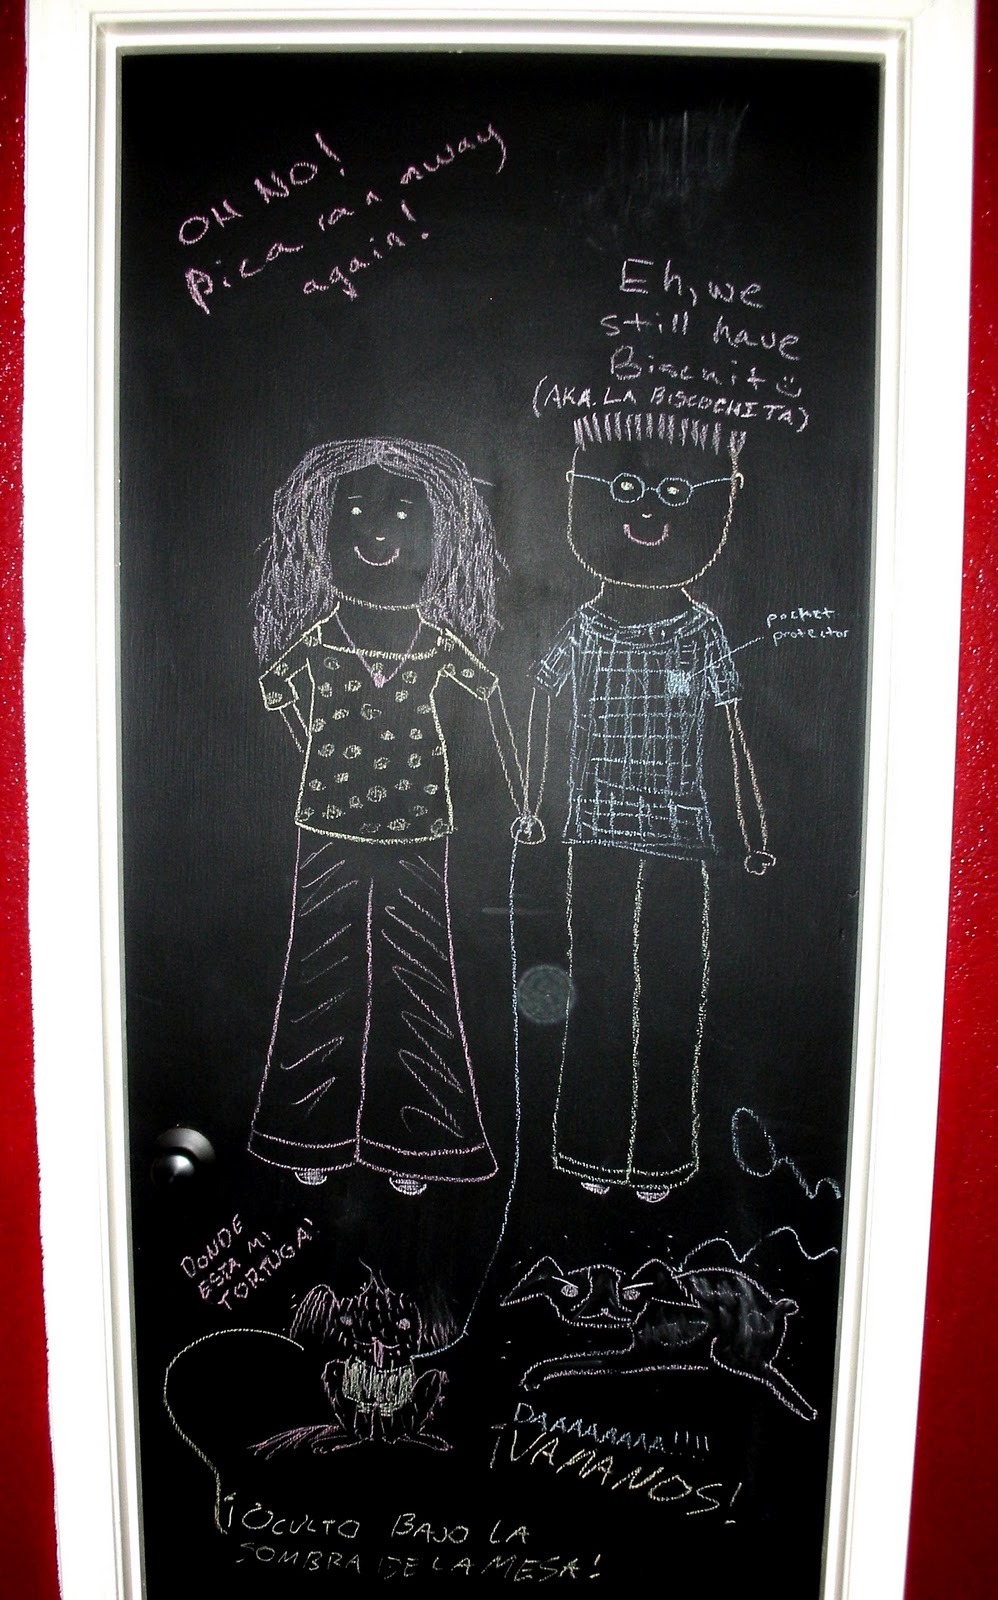 OH NO!
Pica ran away
again!
Eh, we
still have
Biscuit
(AKA. LA BISCOCHITA)
pocket
protector
DONDE
ESTA MI
TORTUGA!
DAAAAAAAA!!!!
¡VAMANOS!
¡OCULTO BAJO LA
SOMBRA DE LA MESA!